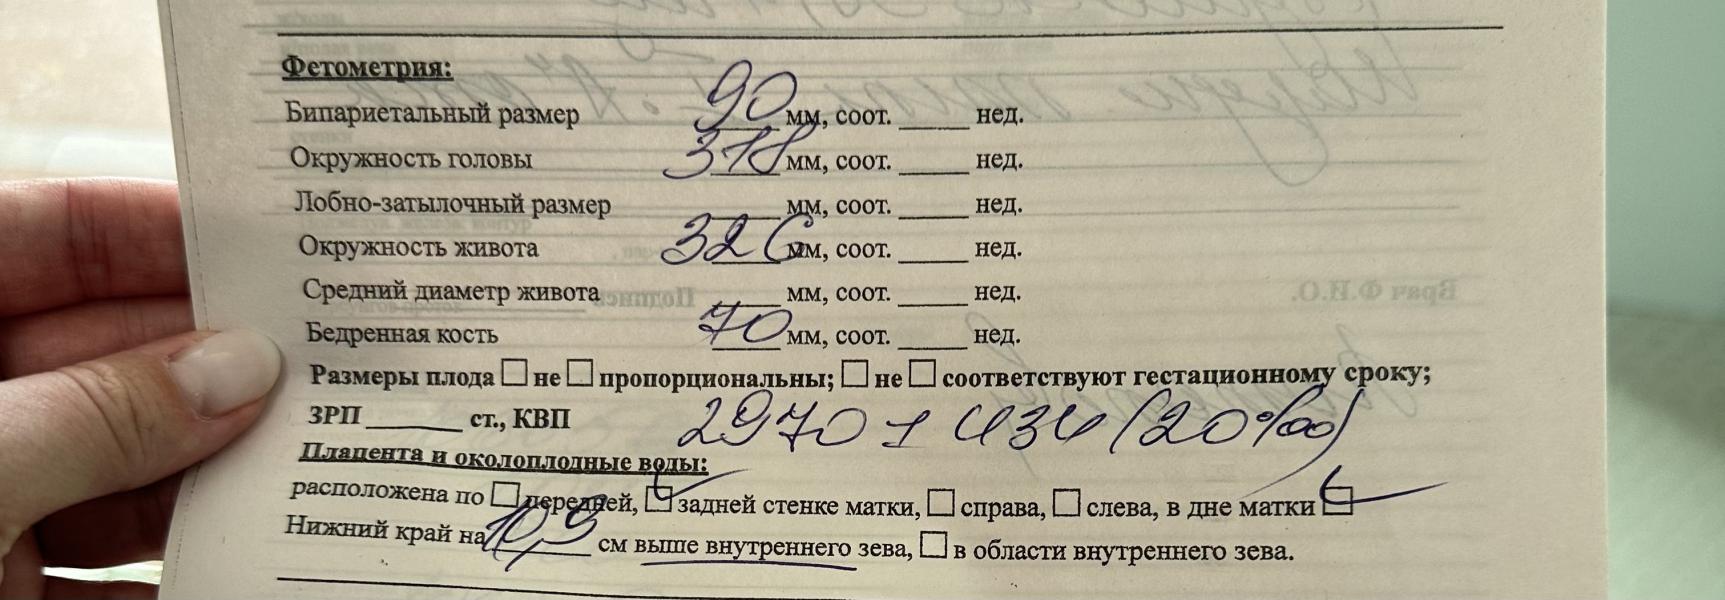 Фетометрия:
Бипариетальный размер 90 мм, соот. _____ нед.
Окружность головы 318 мм, соот. _____ нед.
Лобно-затылочный размер _____ мм, соот. _____ нед.
Окружность живота 326 мм, соот. _____ нед.
Средний диаметр живота _____ мм, соот. _____ нед.
Бедренная кость 70 мм, соот. _____ нед.
Размеры плода ☐ не ☐ пропорциональны; ☐ не ☐ соответствуют гестационному сроку;
ЗРП _______ ст., КВП 2970 ± 434 (20%оо)
Плацента и околоплодные воды:
расположена по ☐ передней, ☑ задней стенке матки, ☐ справа, ☐ слева, в дне матки ☑
Нижний край на 10,3 см выше внутреннего зева, ☐ в области внутреннего зева.
Подписи
Врач Ф.И.О.